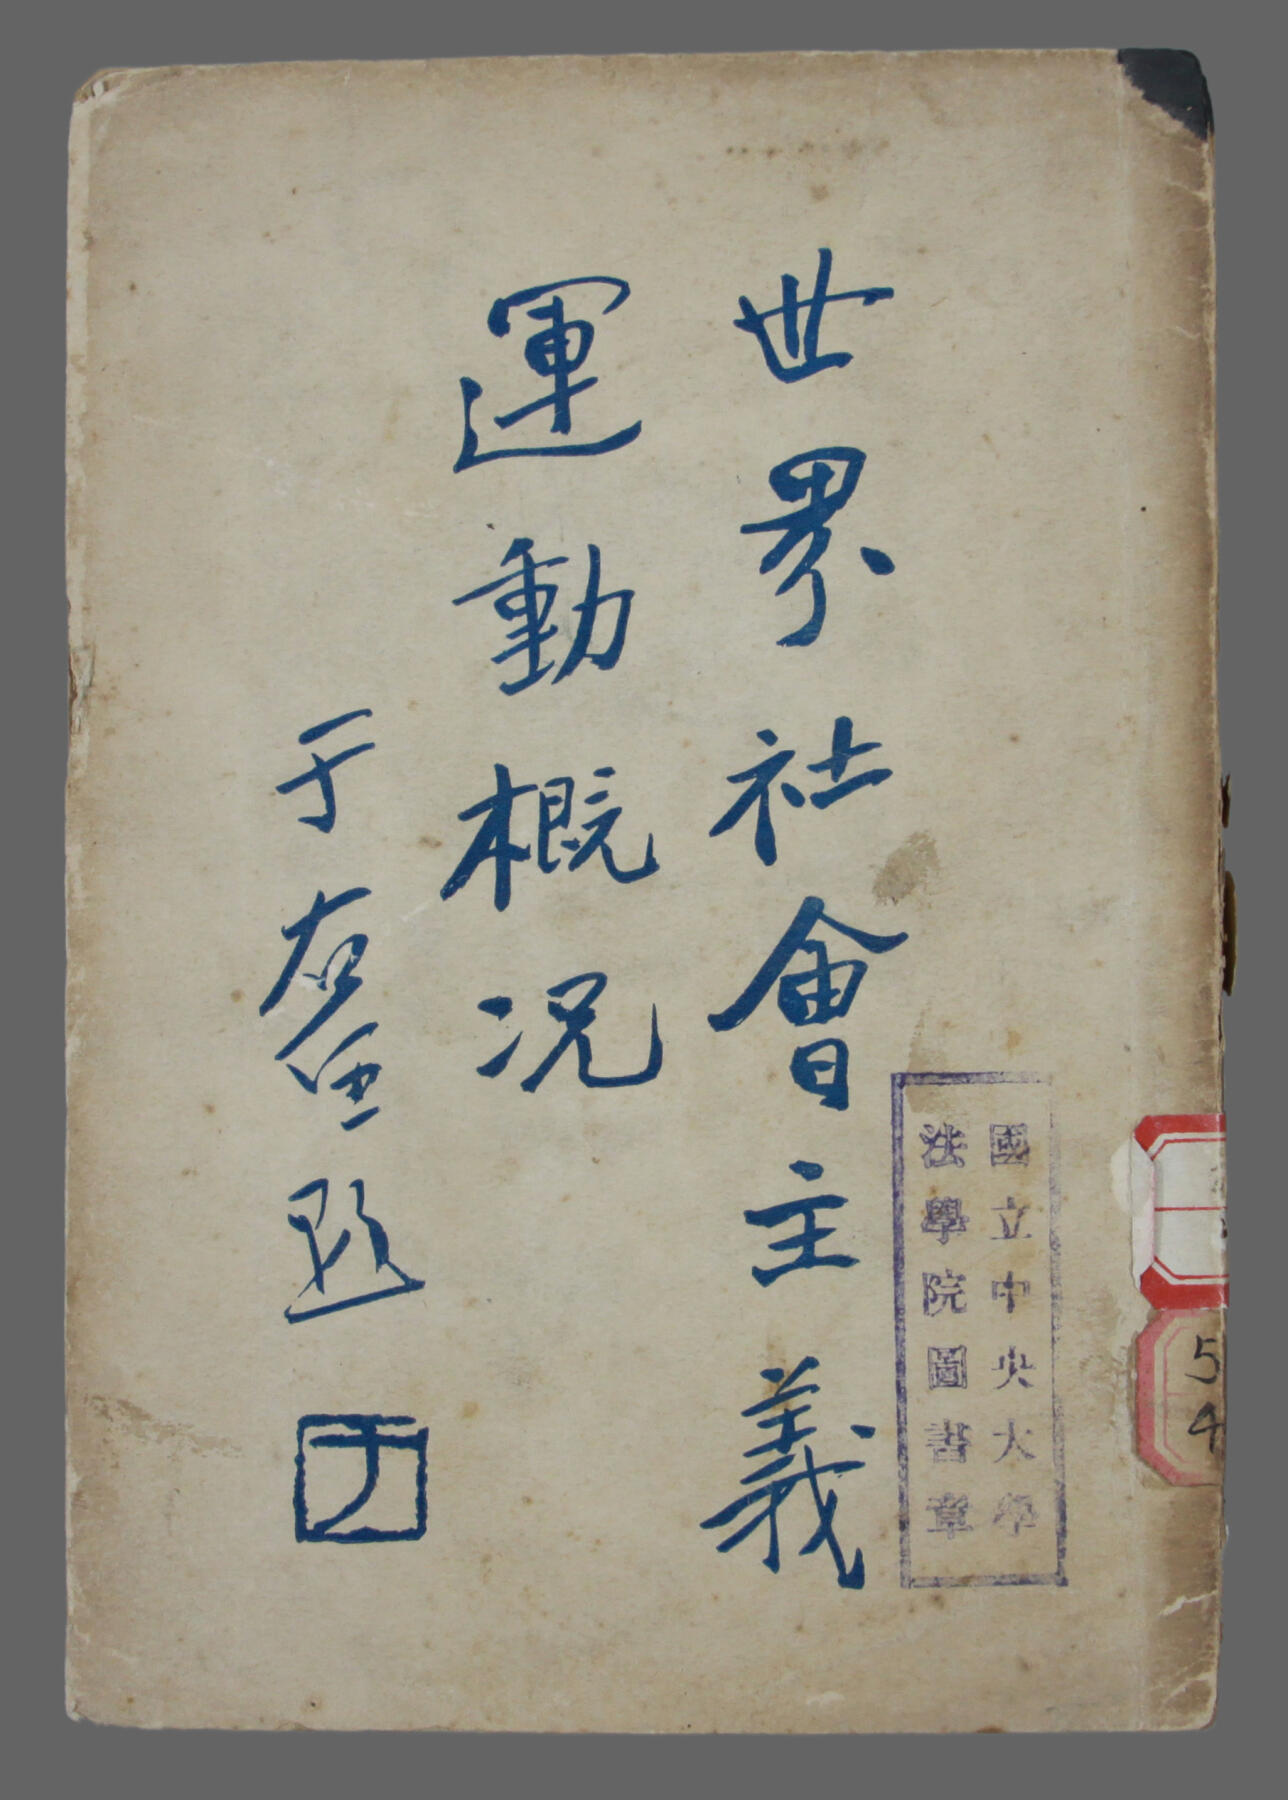 世界社會主義
運動概況
于右任題
國立中央大學
法學院圖書章
5
4